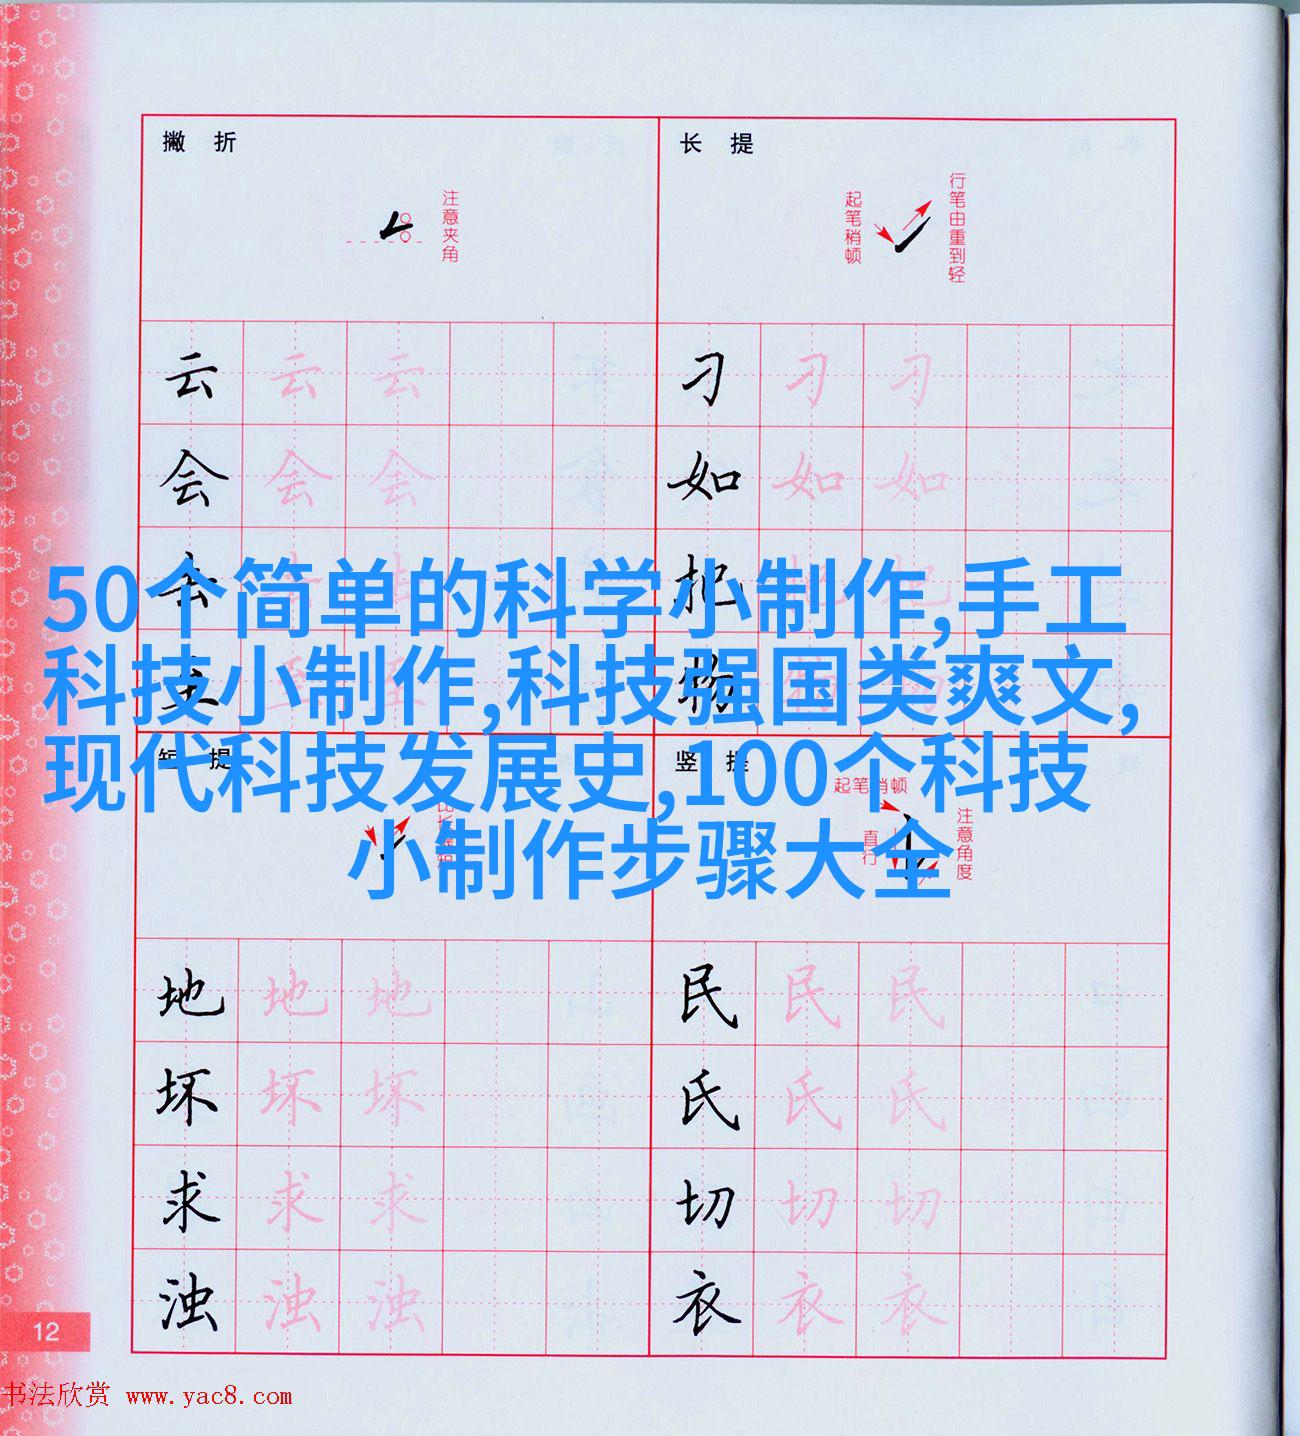 撇 折
注意夹角
长 提
起笔稍顿
行笔由重到轻
云 云 云
刁 刁 刁
会 会 会
如 如 如
去 去 去
把 把 把
50个简单的科学小制作,手工
科技小制作,科技强国类爽文,
现代科技发展史,100个科技
小制作步骤大全
至 至 至
物 物 物
短 提
竖 提
起笔稍顿
直行
注意角度
地 地 地
民 民 民
坏 坏 坏
氏 氏 氏
求 求 求
切 切 切
浊 浊 浊
衣 衣 衣
12
书法欣赏 www.yac8.com